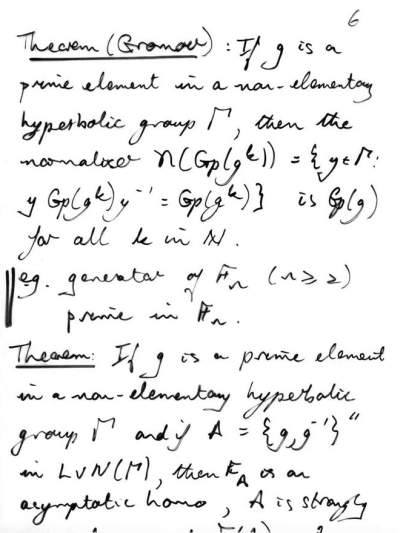 6
Theorem (Gromov) : If g is a
prime element in a non-elementary
hyperbolic group Γ, then the
normalizer N(Gp(gᵏ)) = {y ∈ Γ:
y Gp(gᵏ)y⁻¹ = Gp(gᵏ)} is Gp(g)
for all k in ℕ.
e.g. generator of 𝔽ₙ (n ≥ 2)
prime in 𝔽ₙ.
Theorem: If g is a prime element
in a non-elementary hyperbolic
group Γ and if A = {g, g⁻¹}"
in LvN(Γ), then E_A is an
asymptotic homo, A is strongly